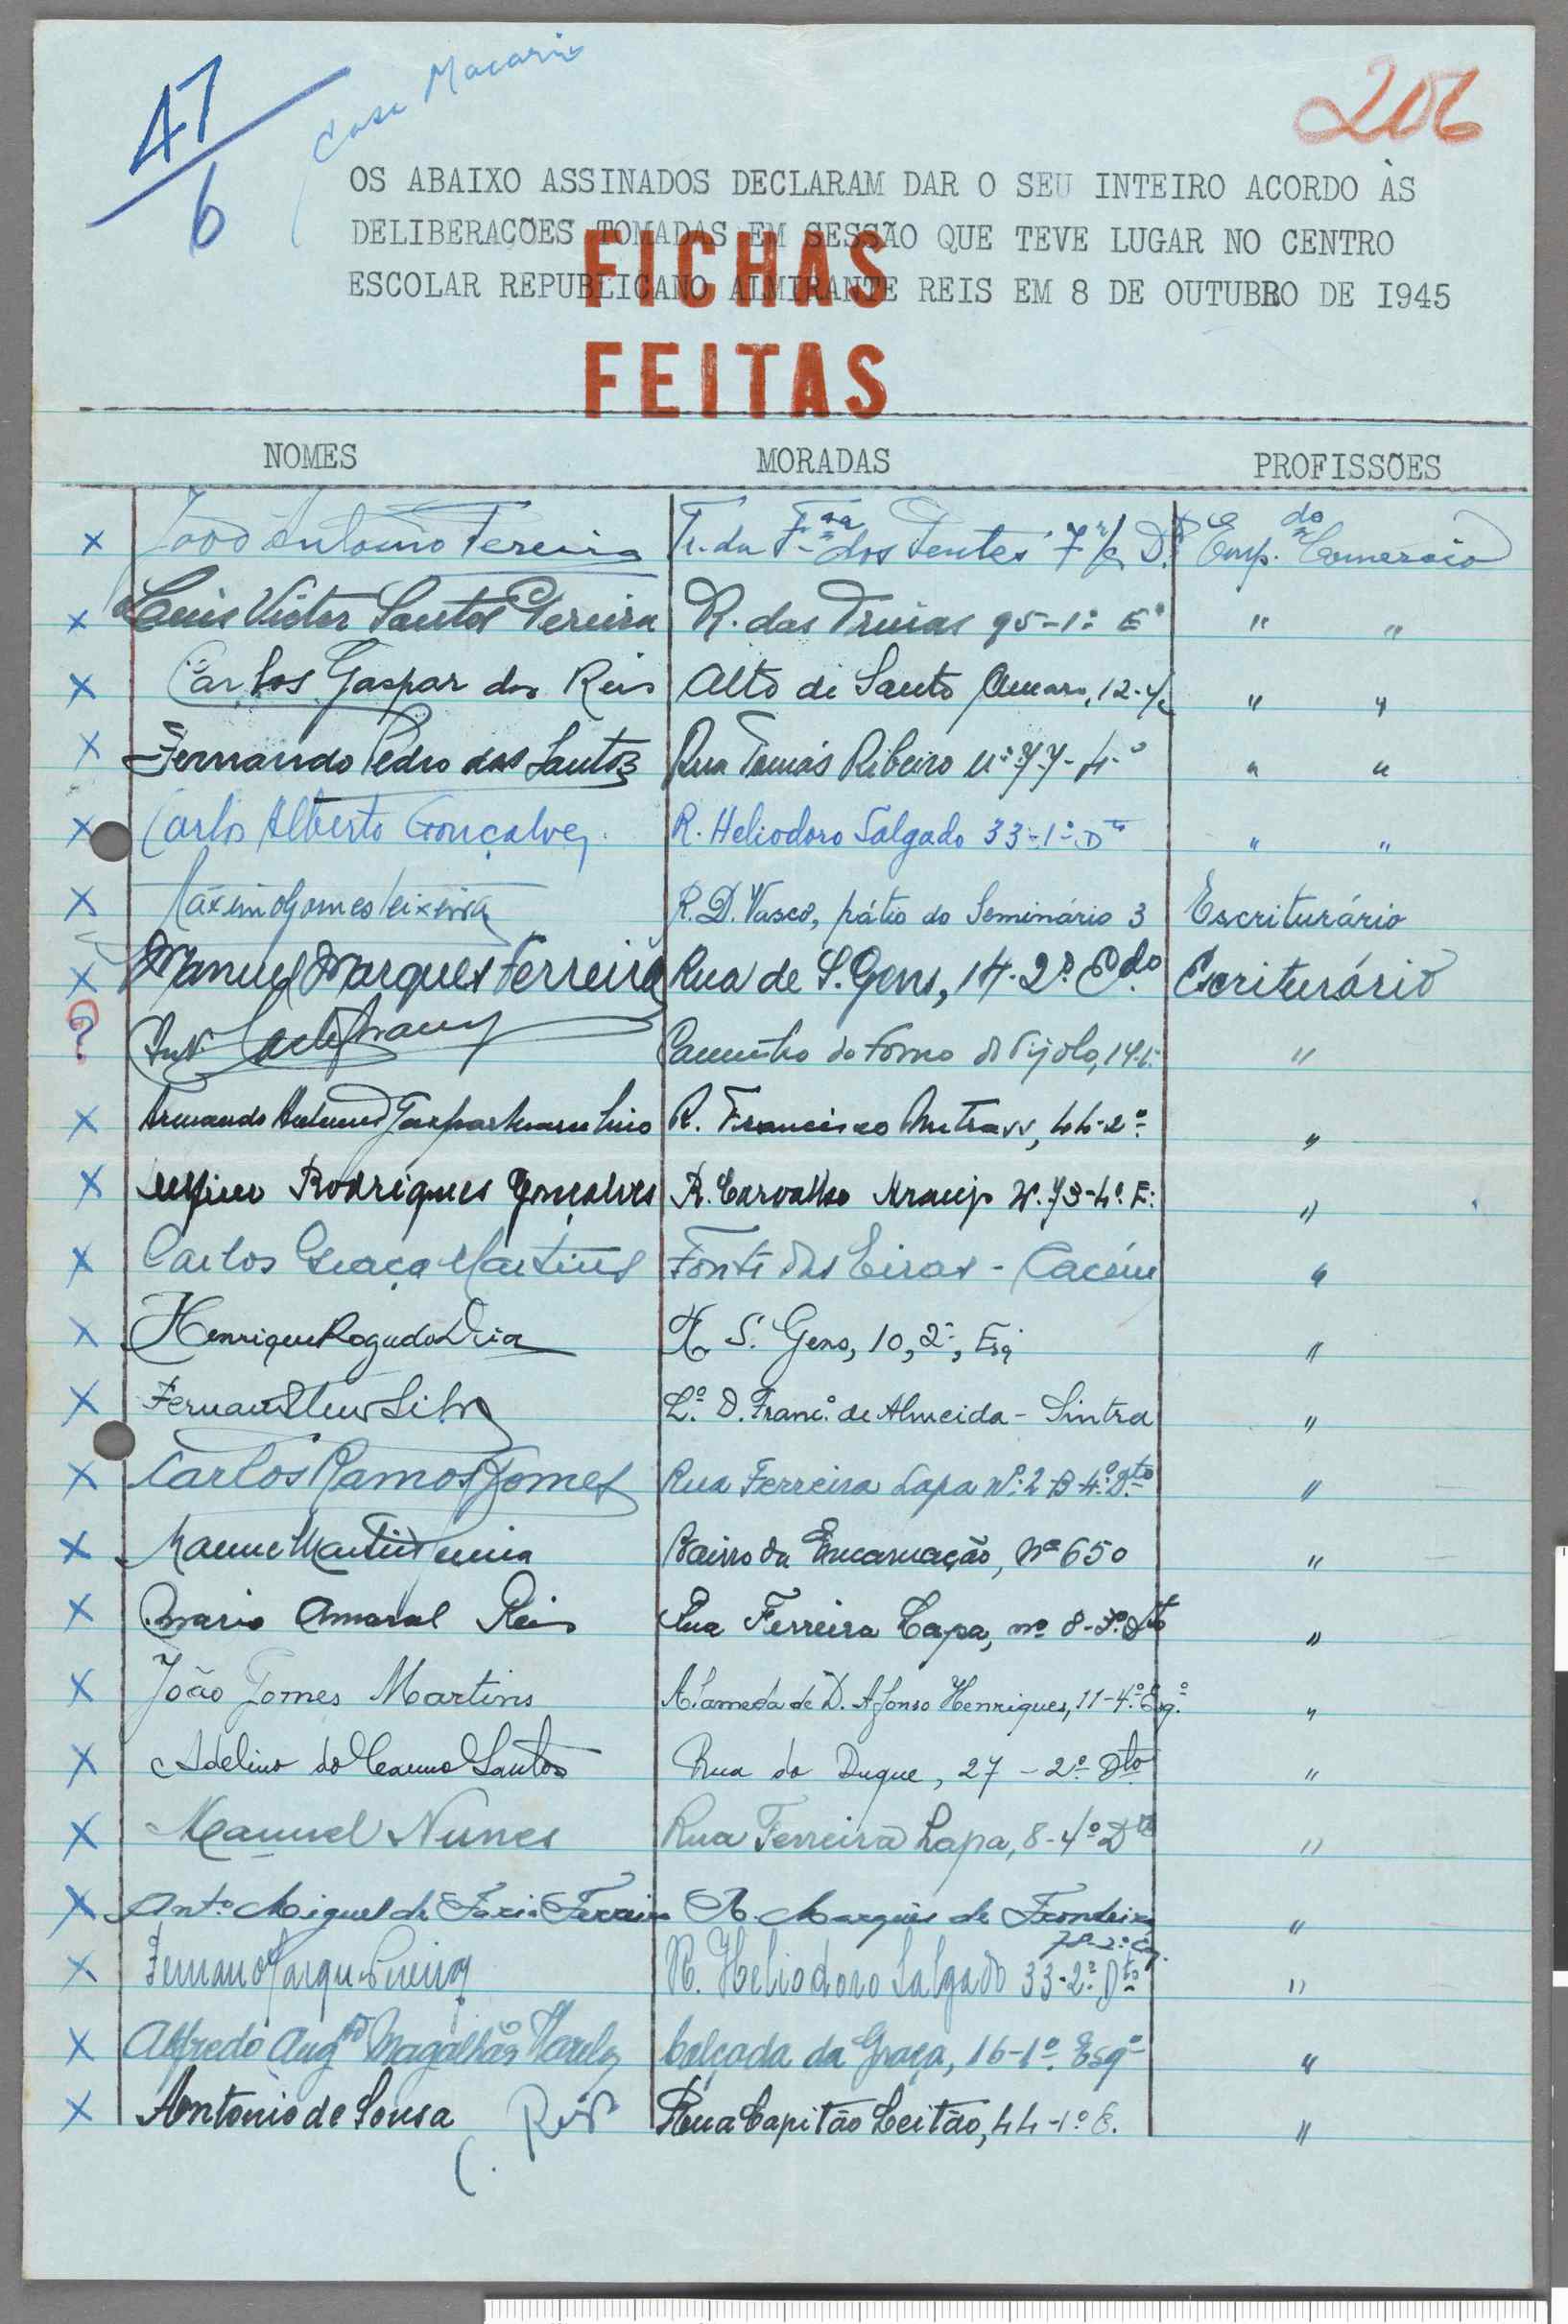 47/6
Casa Macario
206
OS ABAIXO ASSINADOS DECLARAM DAR O SEU INTEIRO ACORDO ÀS
DELIBERAÇÕES TOMADAS EM SESSÃO QUE TEVE LUGAR NO CENTRO
ESCOLAR REPUBLICANO ALMIRANTE REIS EM 8 DE OUTUBRO DE I945
FICHAS
FEITAS
NOMES MORADAS PROFISSÕES
x João António Pereira Tr. da dos Pentes 7 r/c D. Emp. do Comercio
x Luis Victor Santos Pereira R. das Trinas 95-1º Eº " "
x Carlos Gaspar dos Reis Alto de Santo Amaro, 12-r/c " "
x Fernando Pedro dos Santos Rua Tomás Ribeiro nº 77-4º " "
x Carlos Alberto Gonçalves R. Heliodoro Salgado 33-1º-Dto " "
x Máximo Gomes Teixeira R. D. Vasco, pátio do Seminário 3 Escriturário
x Manuel Marques Ferreira Rua de S. Gens, 14-2º Edo Escriturário
? Caminho do Forno do Tijolo, 14-1º "
x Armando Gaspar R. Francisco 44-2º "
x Rodrigues Gonçalves R. Carvalho Araujo Nº 73-4º E. "
x Carlos Graça Martins Fonte das Eiras - Cacém "
x Henrique Rogado Dias R. S. Gens, 10, 2º, Esq "
x Silva L.º D. Franc.º de Almeida - Sintra "
x Carlos Ramos Gomes Rua Ferreira Lapa nº 2-B-4º Dto "
x Bairro da Encarnação, nº 650 "
x Mario Amaral Reis Rua Ferreira Lapa, nº 8-3º Dto "
x João Gomes Martins Alameda de D. Afonso Henriques, 11-4º Esqº "
x Adelino do Carmo Santos Rua do Duque, 27 - 2º Dto "
x Manuel Nunes Rua Ferreira Lapa, 8-4º Dto "
x Antº Miguel de Faria Ferreira R. Marquês de Fronteira "
78-2º Esq.
x R. Heliodoro Salgado 33-2º Dto "
x Alfredo Augto Magalhães Calçada da Graça, 16-1º Esqº "
x Antonio de Sousa Reis Rua Capitão Leitão, 44-1º E. "